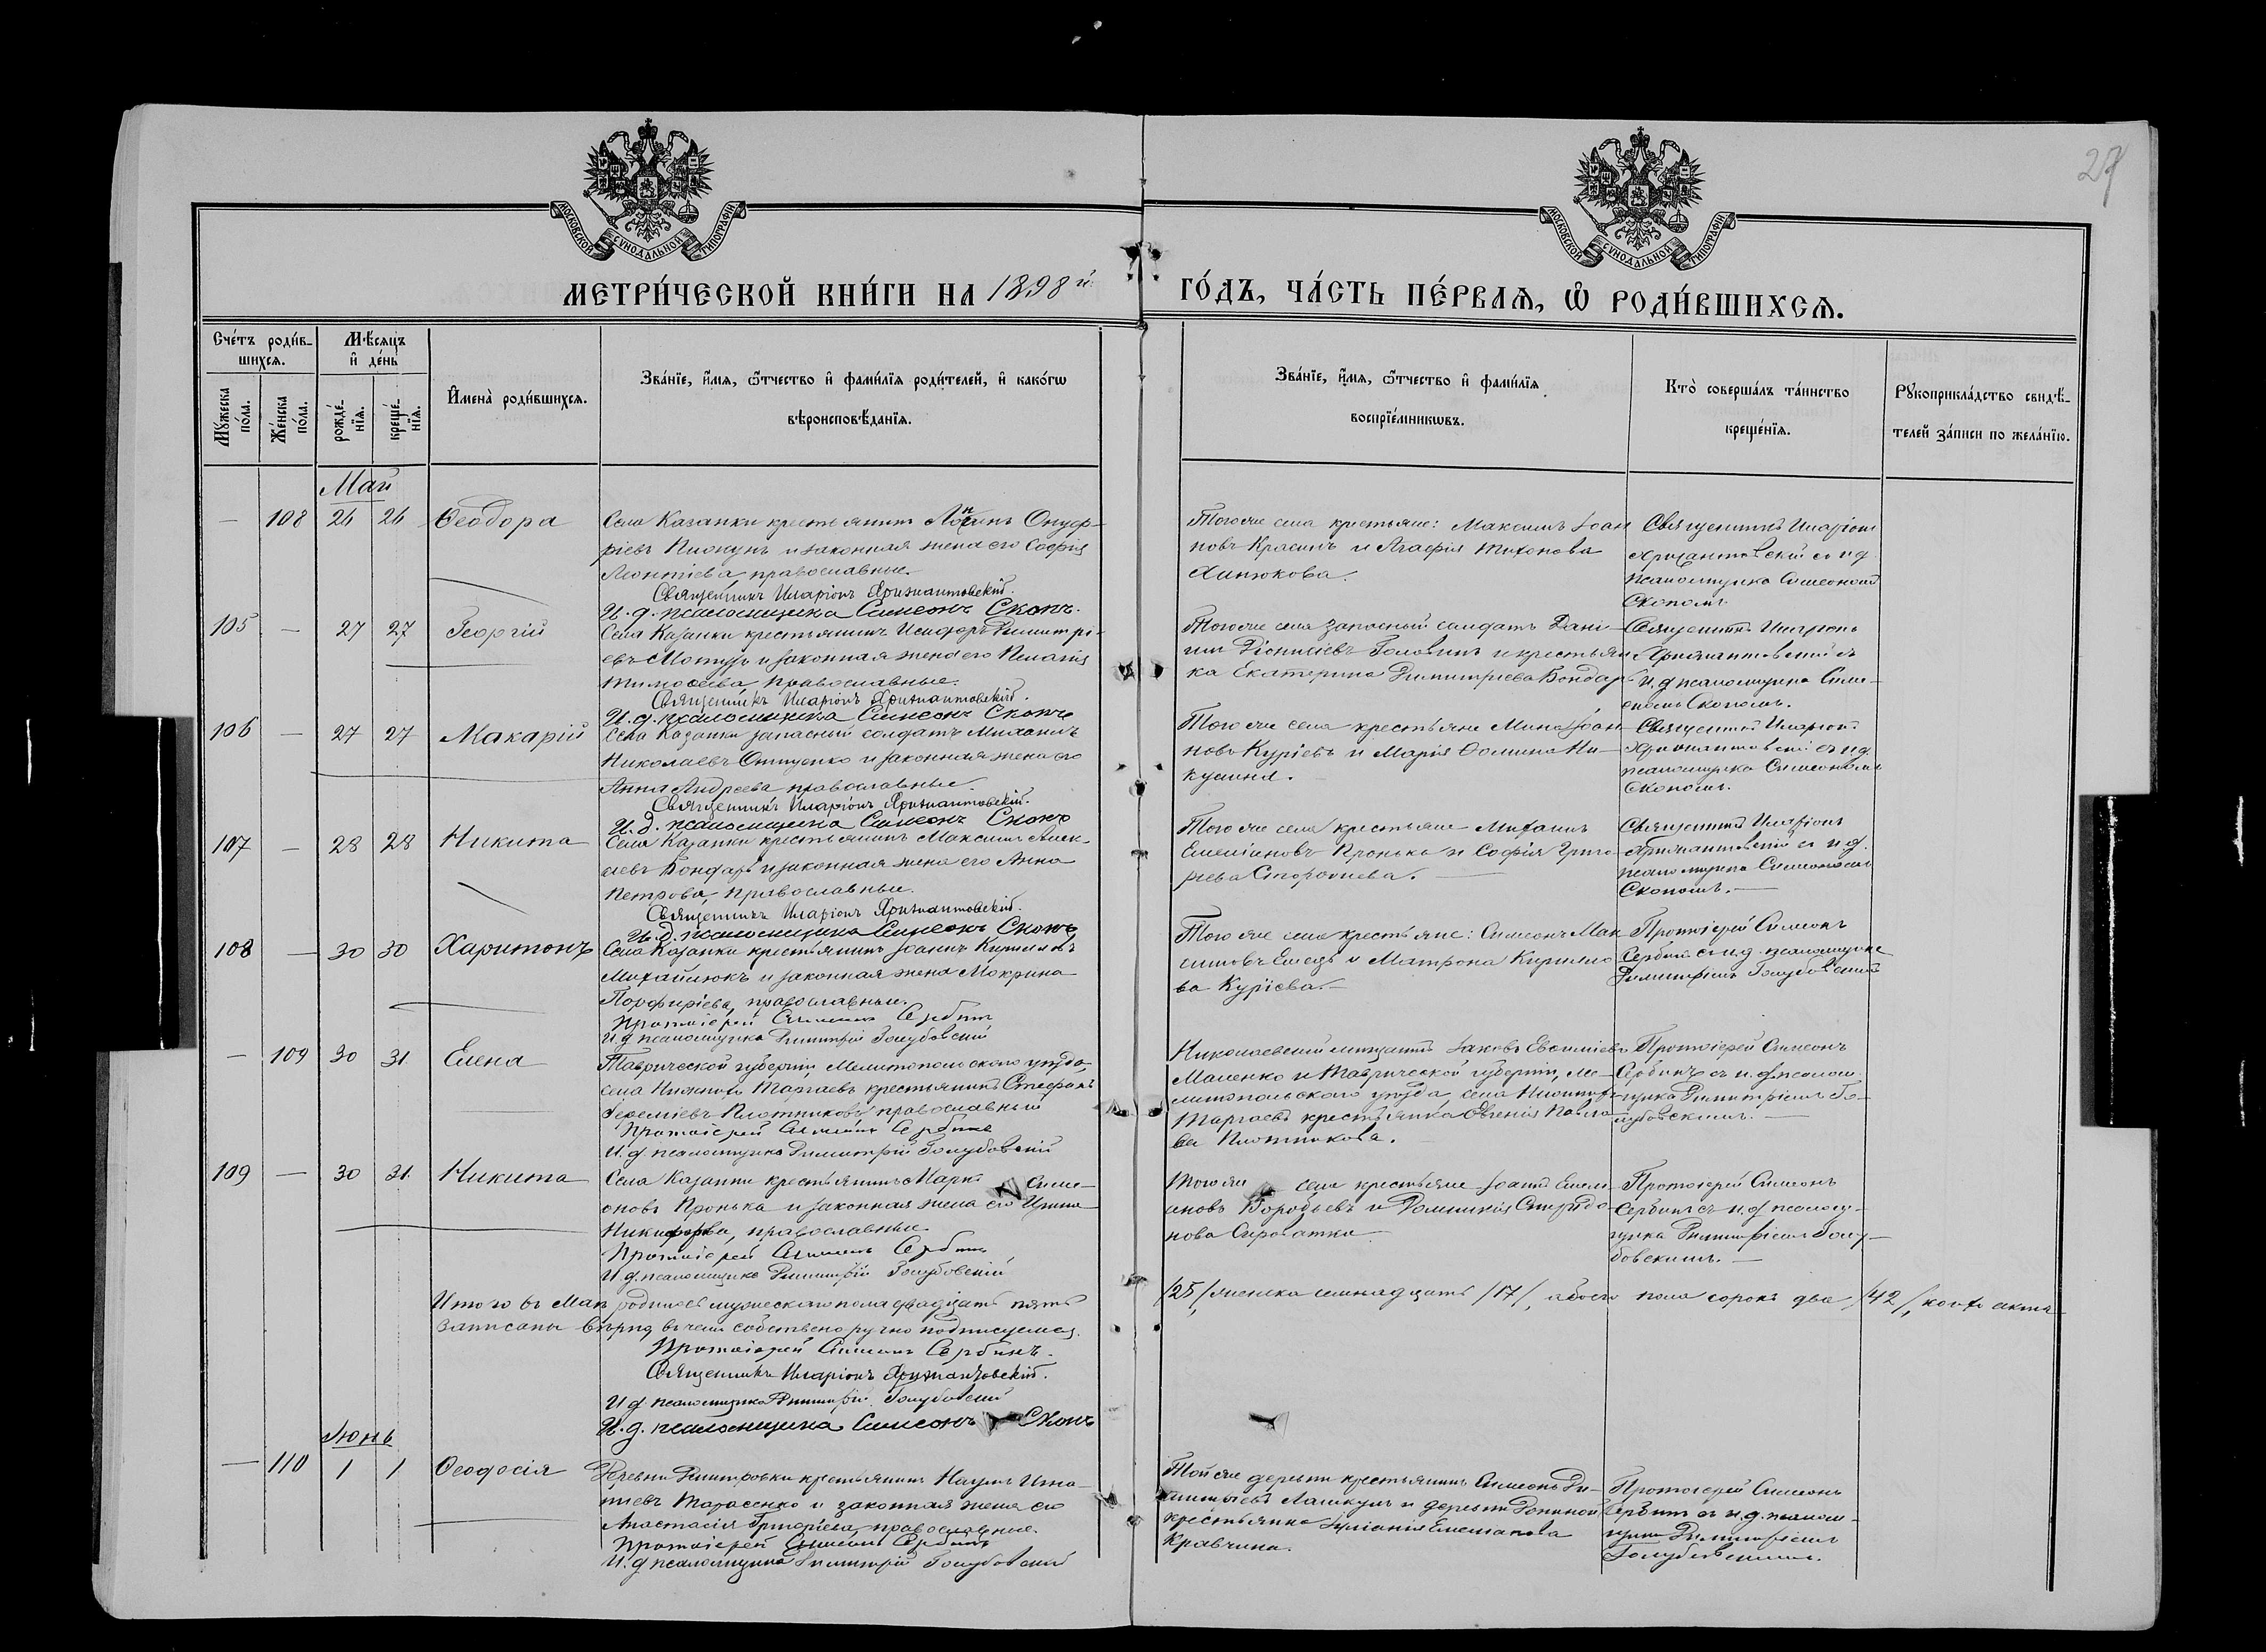 27
МОСКОВСКОЙ СѴНОДАЛЬНОЙ ТИПОГРАФІИ
МОСКОВСКОЙ СѴНОДАЛЬНОЙ ТИПОГРАФІИ
МЕТРИ́ЧЕСКОЙ КНИ́ГИ НА 1898й
ГО́ДЪ, ЧА́СТЬ ПЕ́РВАѦ, Ѽ РОДИ́ВШИХСѦ.
Сче́тъ роди́в-
шихсѧ.
Мѣ́сѧцъ
и де́нь
Мꙋжеска по́ла.
Же́нска по́ла.
рожде́-нїѧ.
креще́-нїѧ.
И҆мена̀ роди́вшихсѧ.
Зва́нїе, и҆́мѧ, ѿтчество и҆ фами́лїѧ роди́телей, и҆ како́гѡ
вѣроисповѣ́данїѧ.
Зва́нїе, и҆́мѧ, ѿтчество и҆ фами́лїѧ
воспрїе́мникѡвъ.
Кто̀ соверша́лъ та́инство
креще́нїѧ.
Рꙋкоприкла́дство свидѣ́-
телей за́писи по жела́нїю.
Май
— 108 26 26 Ѳеодора
Села Казанки крестьянинъ Онуф-
ріевъ Пионунъ и законная жена его Софія
Леонтіева, православные.
Священникъ Иларіонъ Хризантовскій.
И. д. псаломщика Симеонъ Скопъ.
Того же села крестьяне: Максимъ Іоан
новъ Красинъ и Агафія Тихонова
Ханюкова.
Священникъ Иларіонъ
Хризантовскій съ и. д.
псаломщика Симеономъ
Скопомъ.
105 — 27 27 Георгій
Села Казанки крестьянинъ Исидоръ Димитрі-
евъ и законная жена его Пелагія
Тимоѳеева, православные.
Священникъ Иларіонъ Хризантовскій.
И. д. псаломщика Симеонъ Скопъ
Того же села запасный солдатъ Дані-
илъ Діонисіевъ Головинъ и крестьян
ка Екатерина Димитріева Бондар
Священникъ Иларіонъ
Хризантовскій съ
и. д. псаломщика Симе-
ономъ Скопомъ.
106 — 27 27 Макарій
Села Казанки запасный солдатъ Михаилъ
Николаевъ и законная жена его
Анна Андреева православные.
Священникъ Иларіонъ Хризантовскій.
И. д. псаломщика Симеонъ Скопъ
Того же села крестьяне Мина Іоан
новъ Куріевъ и Марія Ѳомина Ни-
кулина.
Священникъ Иларіонъ
Хризантовскій съ и. д.
псаломщика Симеономъ
Скопомъ.
107 — 28 28 Никита
Села Казанки крестьянинъ Максимъ Алек-
сіевъ Бондарь и законная жена его Анна
Петрова, православные.
Священникъ Иларіонъ Хризантовскій.
И. д. псаломщика Симеонъ Скопъ
Того же села крестьяне Михаилъ
Емеліановъ Пронька и Софія Григо
рьева
Священникъ Иларіонъ
Хризантовскій съ и. д.
псаломщика Симеономъ
Скопомъ. —
108 — 30 30 Харитонъ
Села Казанки крестьянинъ Іоаннъ Кирилловъ
Михайлюкъ и законная жена Мокрина
Порфиріева, православные.
Протоіерей Симеонъ Сербинъ
И. д. псаломщика Димитрій Голубовскій
Того же села крестьяне: Симеонъ Мак
симовъ Емецъ и Матрона Кирилло
ва Куріева. —
Протоіерей Симеонъ
Сербинъ съ и. д. псаломщика
Димитріемъ Голубовскимъ
— 109 30 31. Елена
Таврической губерніи Мелитопольскаго уѣзда,
села Нижнихъ Торгаевъ крестьянинъ Стефанъ
Іереміевъ Плотниковъ православный
Протоіерей Симеонъ Сербинъ
И. д. псаломщика Димитрій Голубовскій
Николаевскій мѣщанинъ Іаковъ Евѳиміевъ
Маленко и Таврической губерніи, Ме-
литопольскаго уѣзда, села Нижнихъ
Торгаевъ крестьянка Евгенія Павло-
ва Плотникова.
Протоіерей Симеонъ
Сербинъ съ и. д. псалом-
щика Димитріемъ Го-
лубовскимъ. —
109 — 30 31. Никита
Села Казанки крестьянинъ Маркъ Симе-
оновъ Пронька и законная жена его Ирина
Никифорова, православные.
Протоіерей Симеонъ Сербинъ
И. д. псаломщика Димитрій Голубовскій
Того же села крестьяне Іоаннъ Емелі
ановъ Воробьевъ и Домникія Спиридо-
нова Сироватка
Протоіерей Симеонъ
Сербинъ съ и. д. псалом-
щика Димитріемъ Голу-
бовскимъ. —
Итого въ Маѣ родилось мужескаго пола двадцать пять
/25/, женска семнадцать /17/, обоего пола сорокъ два /42/, коихъ акты
записаны вѣрно въ чемъ собственноручно подписуемся.
Протоіерей Симеонъ Сербинъ.
Священникъ Иларіонъ Хризантовскій.
И. д. псаломщика Димитрій Голубовскій
И. д. псаломщика Симеонъ Скопъ
Іюнь
— 110 1 1 Ѳеодосія
Деревни Дмитровки крестьянинъ Наумъ Игна-
тіевъ Тарасенко и законная жена его
Анастасія Григорьева, православные.
Протоіерей Симеонъ Сербинъ
И. д. псаломщика Димитрій Голубовскій
Той же деревни крестьянинъ Симеонъ Ди-
митріевъ и деревни
крестьянка Іуліанія Емеліанова
Кравчина.
Протоіерей Симеонъ
Сербинъ съ и. д. псалом-
щика Димитріемъ
Голубовскимъ.